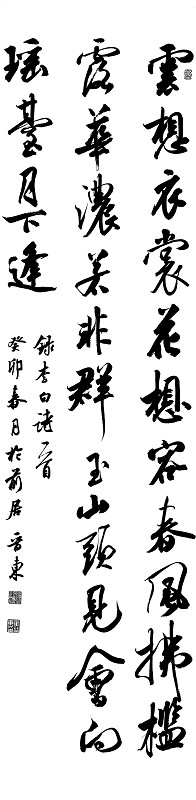 雲想衣裳花想容春風拂檻
露華濃若非群玉山頭見會向
瑤臺月下逢
錄李白詩一首
癸卯春月於前居晉東